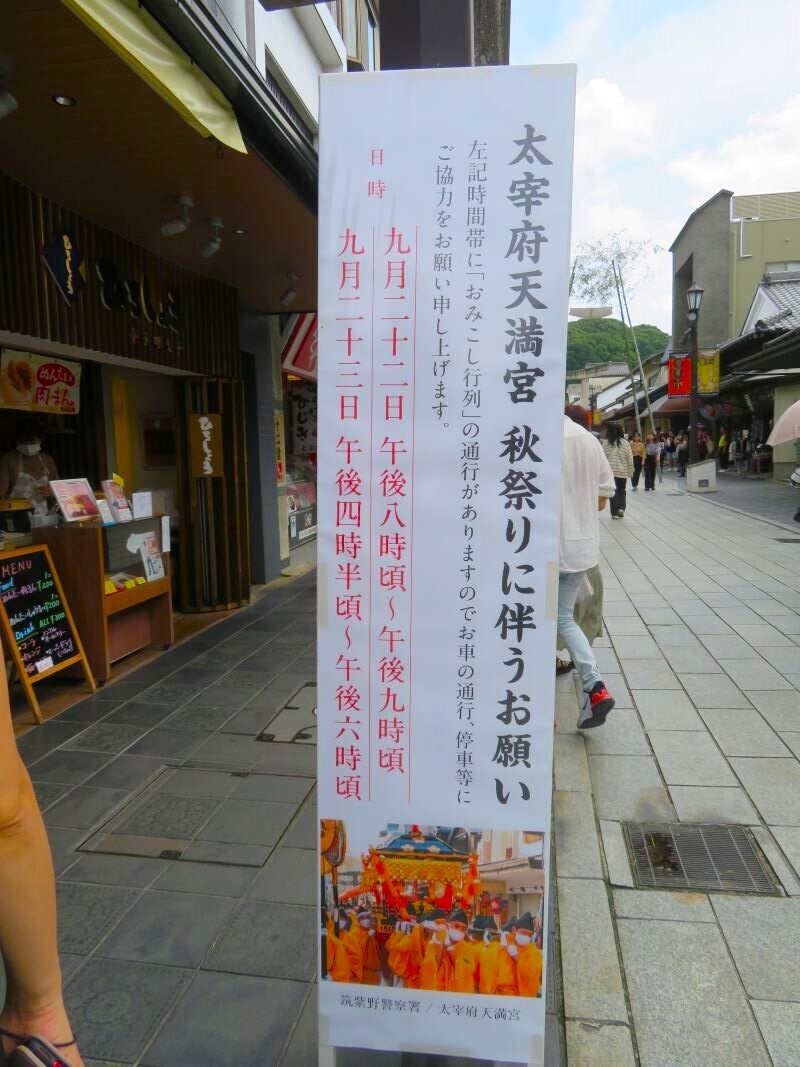 太宰府天満宮 秋祭りに伴うお願い
左記時間帯に「おみこし行列」の通行がありますのでお車の通行、停車等に
ご協力をお願い申し上げます。
日時
九月二十二日 午後八時頃〜午後九時頃
九月二十三日 午後四時半頃〜午後六時頃
筑紫野警察署 / 太宰府天満宮
ひろしょう
めんたい
肉まん
ひろしょう
MENU
Food
¥200
¥200
Drink ALL ¥200
・コーラ